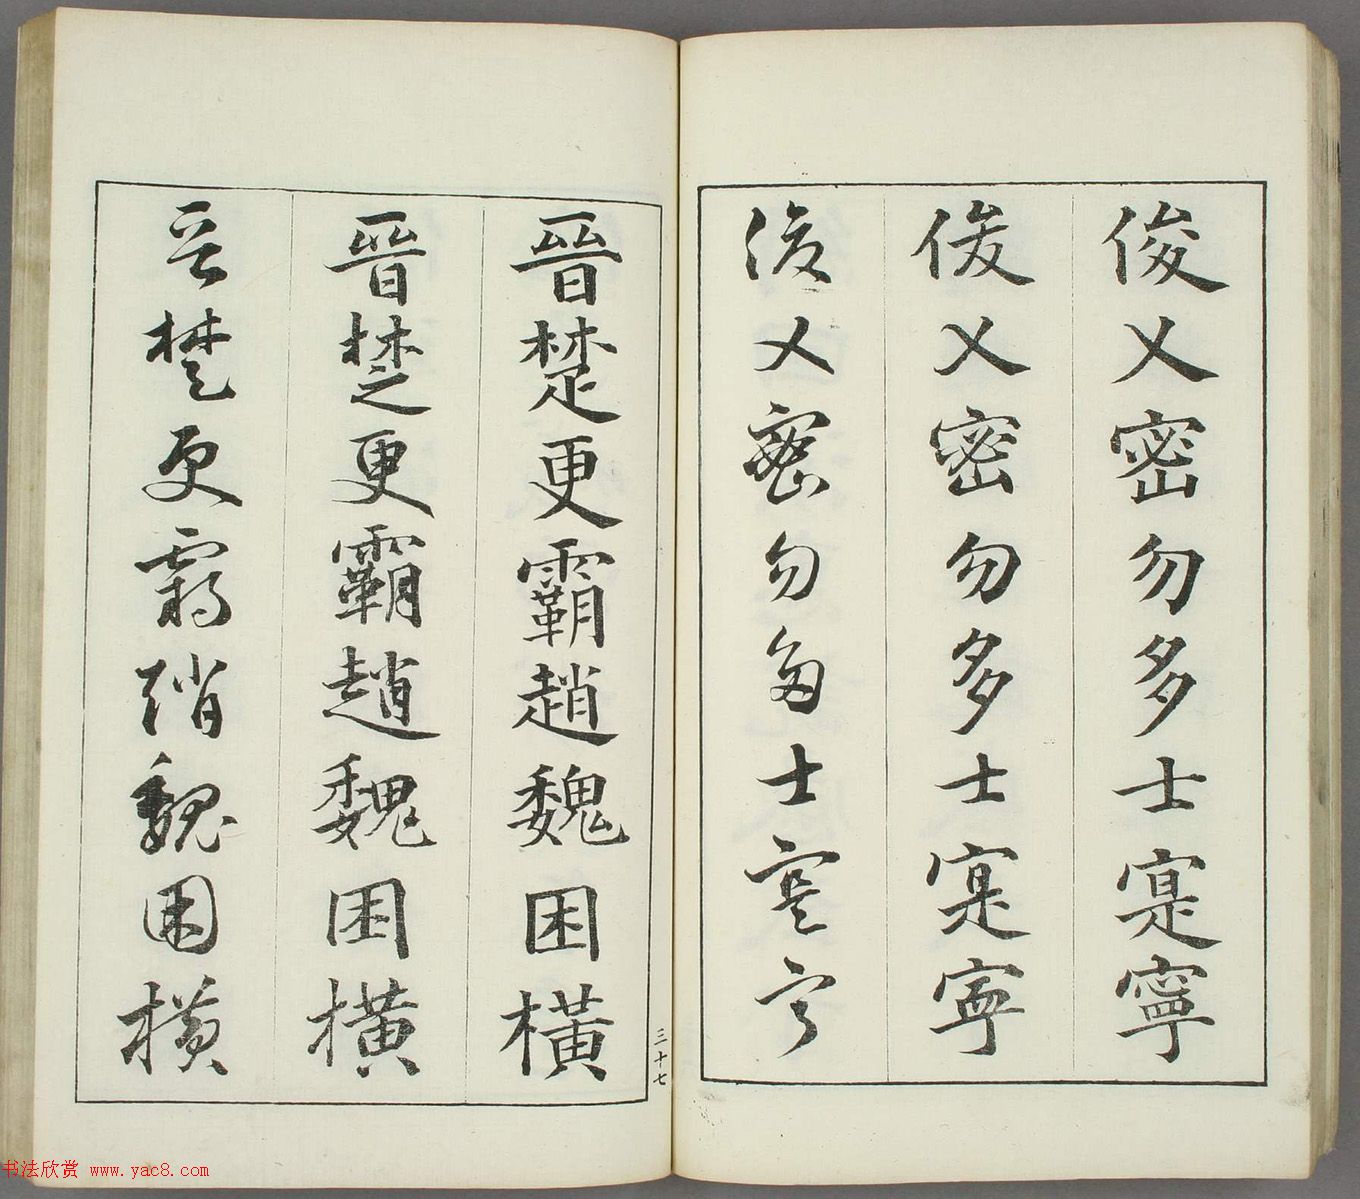 俊乂密勿多士寔寧
俊乂密勿多士寔寧
俊乂密勿多士寔寧
晉楚更霸趙魏困橫
晉楚更霸趙魏困橫
晉楚更霸趙魏困橫
三十七
书法欣赏 www.yac8.com